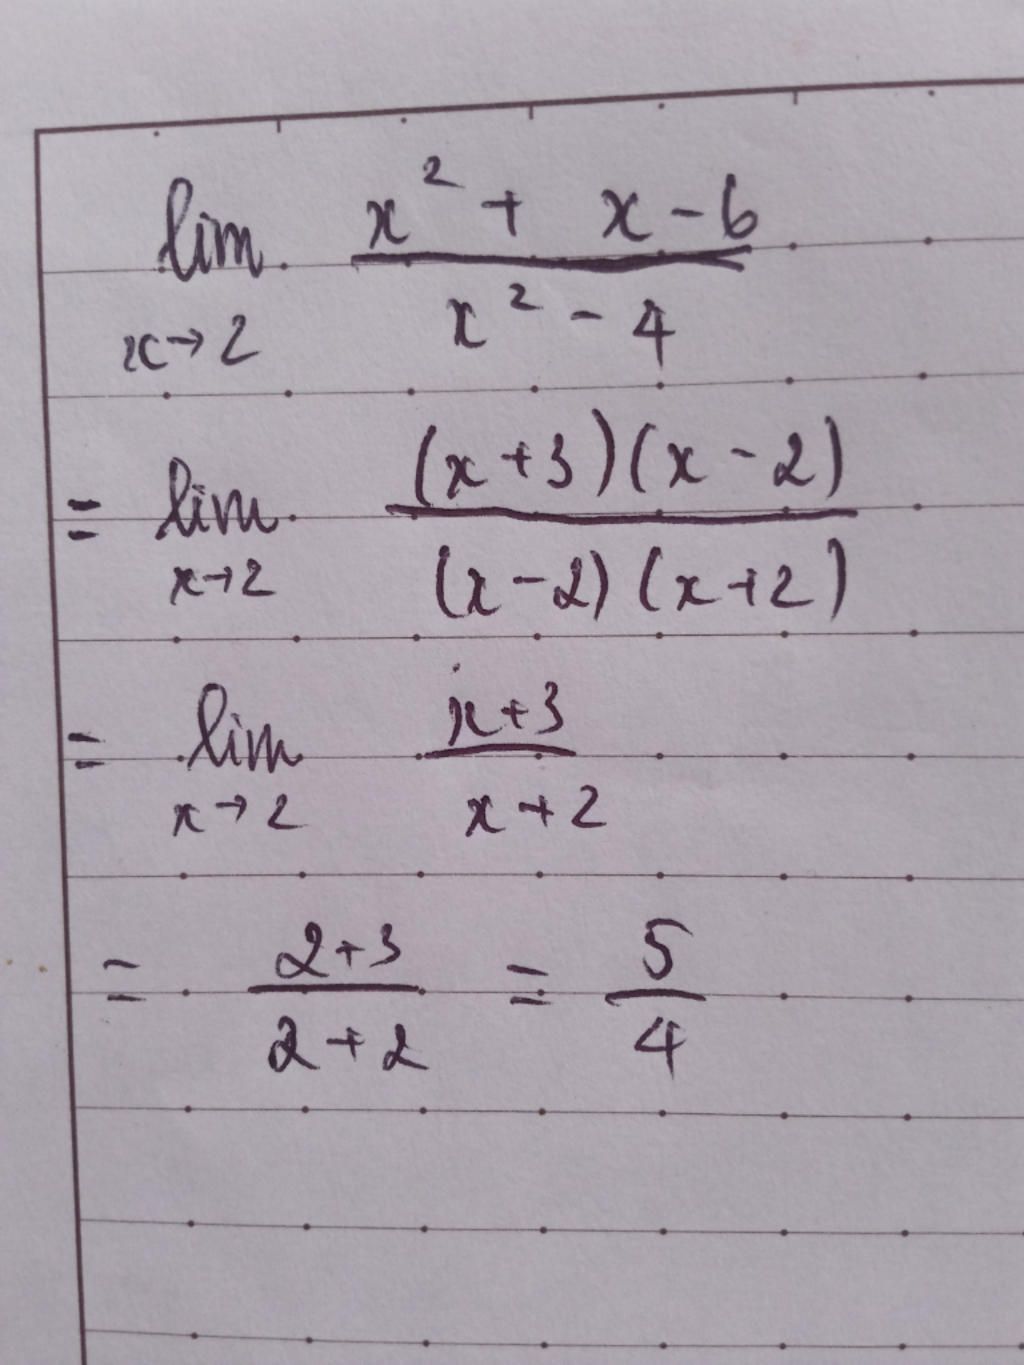 lim x→2 (x² + x - 6) / (x² - 4)
= lim x→2 ((x+3)(x-2)) / ((x-2)(x+2))
= lim x→2 (x+3) / (x+2)
= (2+3) / (2+2) = 5/4